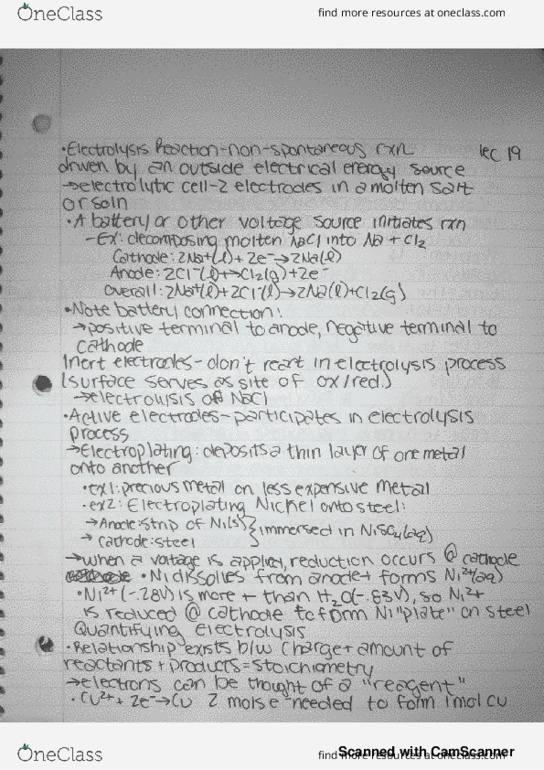 OneClass
find more resources at oneclass.com
•Electrolysis Reaction-non-spontaneous rxn lec 19
driven by an outside electrical energy source
→electrolytic cell-2 electrodes in a molten salt
or soln
•A battery or other voltage source initiates rxn
-Ex: decomposing molten NaCl into Na + Cl2
Cathode: 2Na+(l) + 2e-→2Na(l)
Anode: 2Cl-(l)→Cl2(g)+2e-
Overall: 2Na+(l)+2Cl-(l)→2Na(l)+Cl2(g)
•Note battery connection:
→positive terminal to anode, negative terminal to
cathode
Inert electrodes-don't react in electrolysis process
(surface serves as site of ox/red.)
→electrolysis of NaCl
•Active electrodes-participates in electrolysis
process
→Electroplating: deposits a thin layer of one metal
onto another
•ex1: precious metal on less expensive metal
•ex2: Electroplating Nickel onto steel:
→Anode: strip of Ni(s)
→cathode: steel } immersed in NiSO4(aq)
→when a voltage is applied, reduction occurs @ cathode
•Ni dissolves from anode + forms Ni2+(aq)
•Ni2+(-.28V) is more + than H2O(-.83V), so Ni2+
is reduced @ cathode to form Ni "plate" on steel
Quantifying Electrolysis
•Relationship exists b/w charge + amount of
reactants + products = stoichiometry
→electrons can be thought of a "reagent"
•Cu2+ + 2e-→Cu 2 mols e- needed to form 1mol Cu
OneClass
find more resources at oneclass.com
Scanned with CamScanner